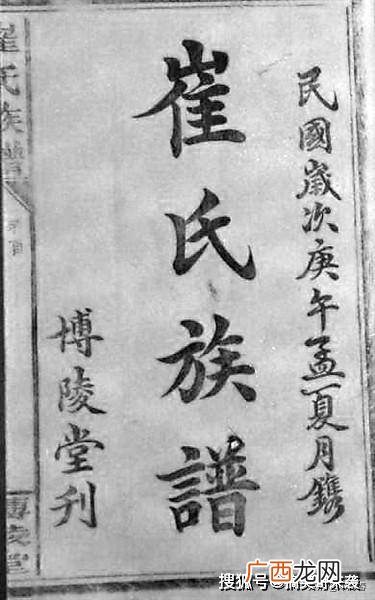 民國歲次庚午孟夏月鐫
崔氏族譜
博陵堂刋
崔氏族譜
博陵堂
广西龙网
搜狐号@